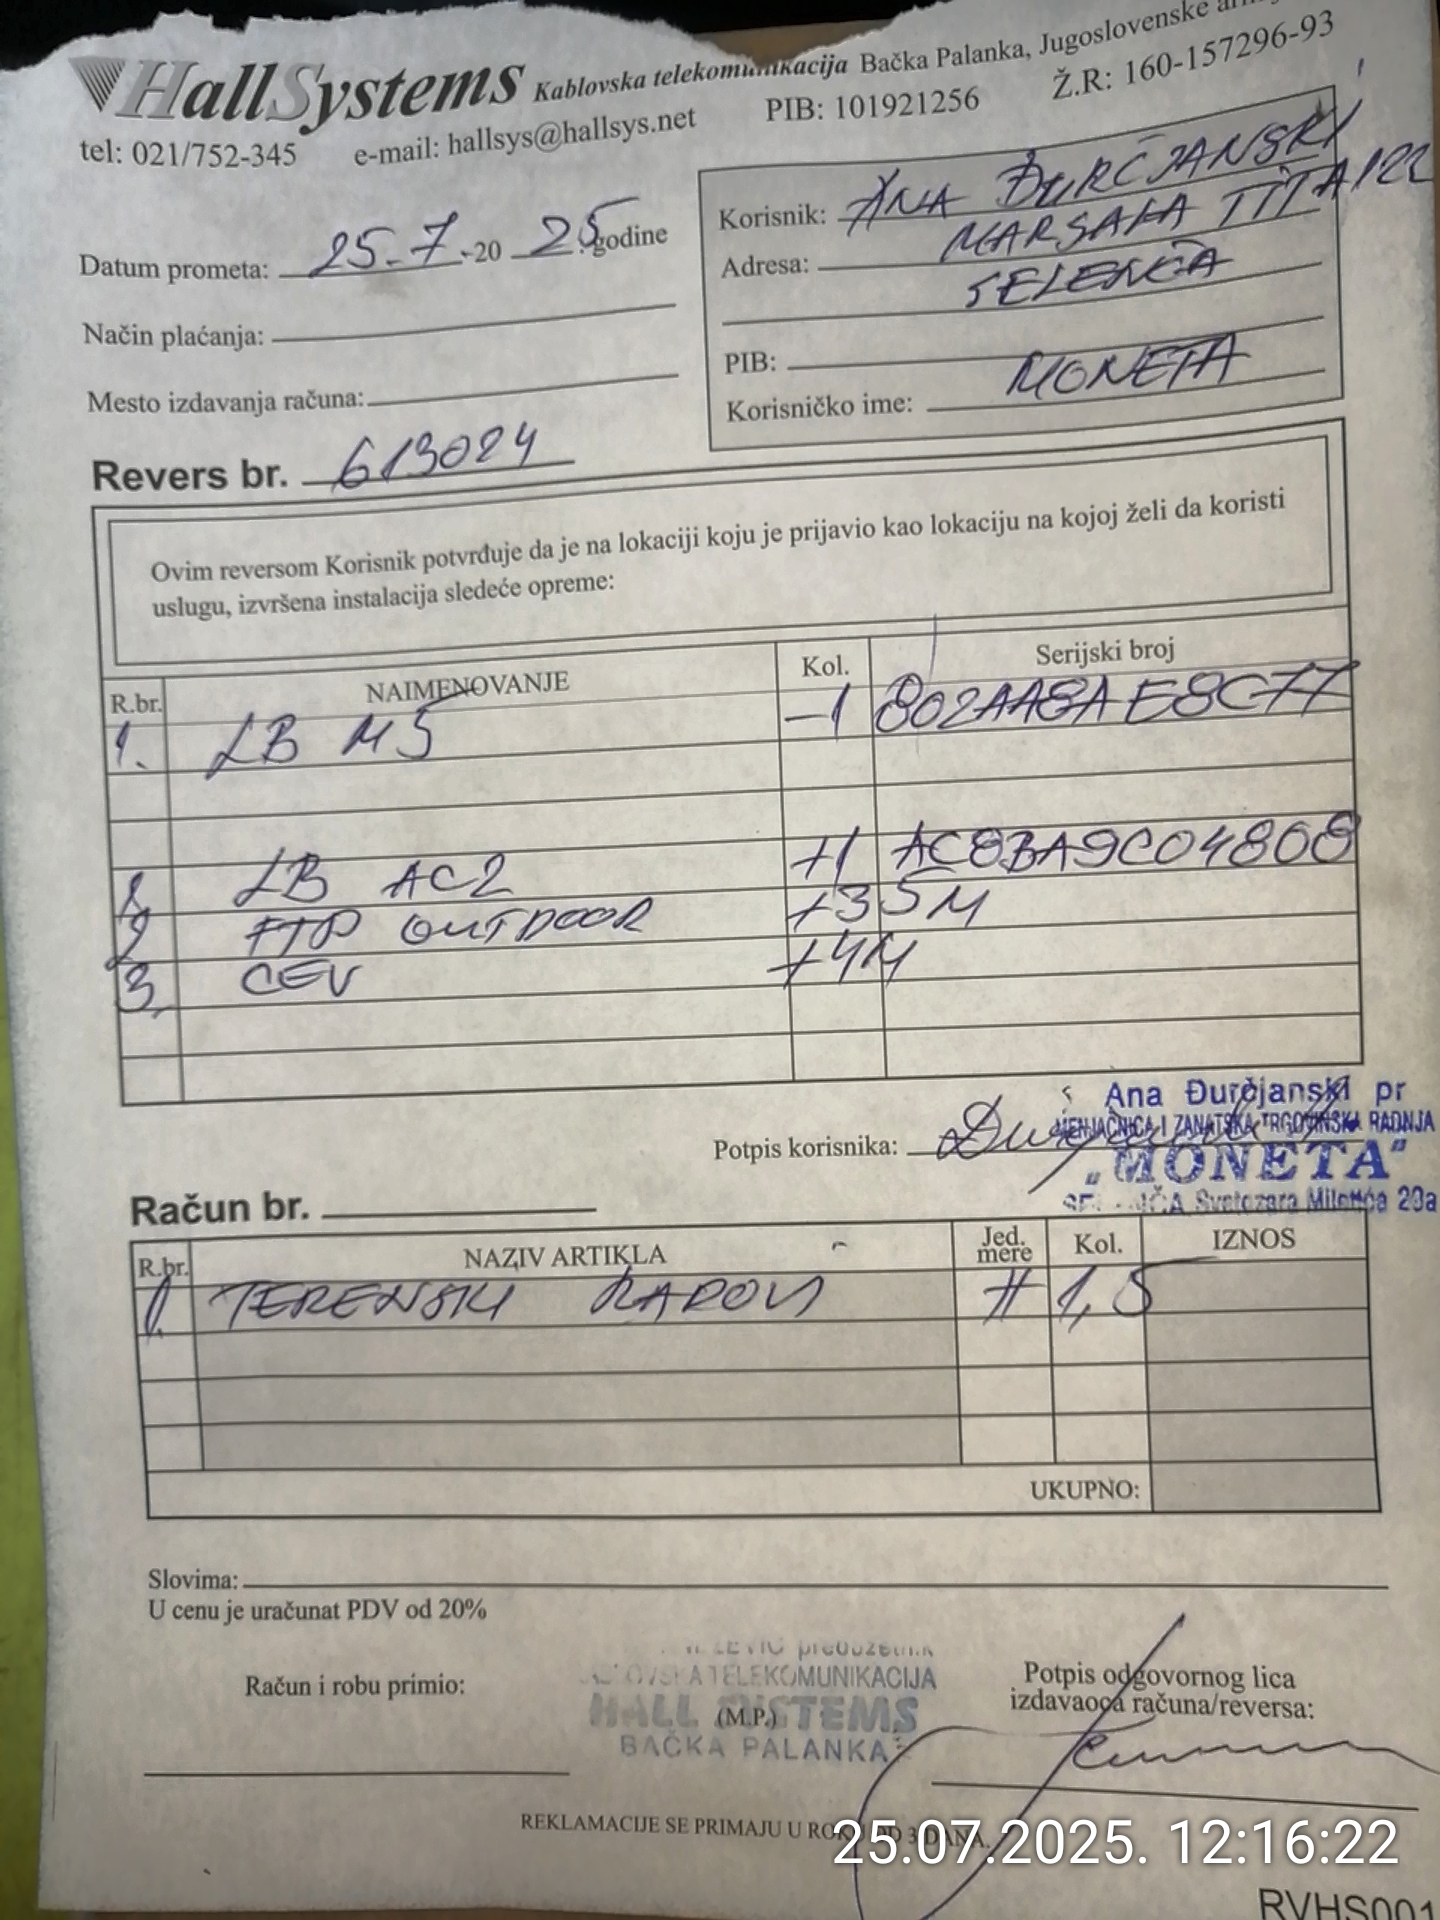 HallSystems Kablovska telekomunikacija Bačka Palanka, Jugoslovenske
tel: 021/752-345 e-mail: hallsys@hallsys.net PIB: 101921256 Ž.R: 160-157296-93
Datum prometa: 25.7.-20 25 godine
Način plaćanja:
Mesto izdavanja računa:
Korisnik: ANA ĐURČJANSKI
Adresa: MARŠALA TITA 122
SELENČA
PIB:
Korisničko ime: MONETA
Revers br. 613024
Ovim reversom Korisnik potvrđuje da je na lokaciji koju je prijavio kao lokaciju na kojoj želi da koristi
uslugu, izvršena instalacija sledeće opreme:
R.br. NAIMENOVANJE Kol. Serijski broj
1. LB M5 -1 802AA8AE8C77
1. LB AC2 +1 AC8BA9C04808
2 FTP OUTDOOR +35M
3. CEV +4M
Potpis korisnika:
Ana Đurčjanski pr
MENJAČNICA I ZANATSKA TRGOVINSKA RADNJA
„MONETA"
SELENČA Svetozara Miletića 20a
Račun br.
R.br. NAZIV ARTIKLA Jed. mere Kol. IZNOS
1. TERENSKI RADOVI H 1,5
UKUPNO:
Slovima:
U cenu je uračunat PDV od 20%
Račun i robu primio:
TELEKOMUNIKACIJA
HALL SYSTEMS
(M.P.)
BAČKA PALANKA
Potpis odgovornog lica
izdavaoca računa/reversa:
REKLAMACIJE SE PRIMAJU U ROKU OD 3 DANA.
25.07.2025. 12:16:22
RVHS001